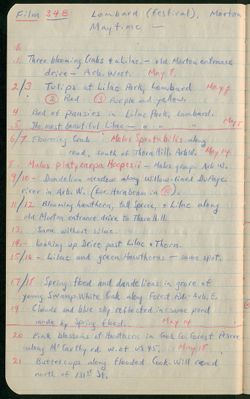 Film 348 Lombard (festival), Morton
Maytime —
1. Three blooming Crabs & Lilac — old Morton entrance
drive — Arb. West. May 8.
2/3 Tulips at Lilac Park, Lombard May 8
② Red ③ Purple and yellow.
4 Bed of pansies in Lilac Park, Lombard.
5. The most beautiful Lilac — " " May 8
6/7 Flowering Crab Malus Spectabilis along
road, south of Thornhill, Arb. W. May 14.
8 Malus platycarpa Hoopesii — Malus group Arb. W.
9/10 — Dandelion meadow along willow-lined DuPage
river in Arb. W.
11/12 Blooming hawthorn, tall Species, & Lilac along
old Morton entrance drive to Thornhill.
13. Same without Lilac.
14 — Looking up Drive past Lilac & Thorn.
15/16 — Lilac and green Hawthorne — same spot.
17/18 Spring flood and dandelions in grove of
young Swamp White Oak along Forest ride - Arb. E.
19 Clouds and blue sky reflected in same pond
made by spring flood. May 14
20 Pink blossoms of Hawthorn in Cook Co. Forest Preserve
along McCarthy rd. w. of US 45. May 18
21 Buttercups along flooded Oak. Will Co. road
north of 131st St.